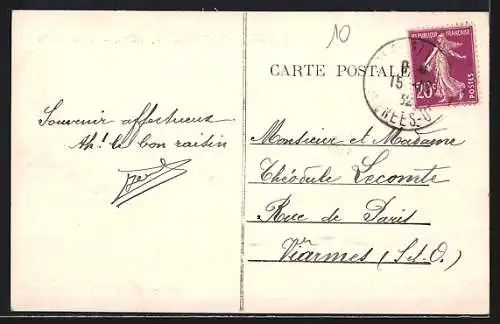 10
CARTE POSTALE
REPUBLIQUE FRANÇAISE
20c
POSTES
15
32
Souvenir affectueux
Ah! le bon raisin
Monsieur et Madame
Théodule Lecomte
Rue de Paris
Viarmes (S.-et-O.)